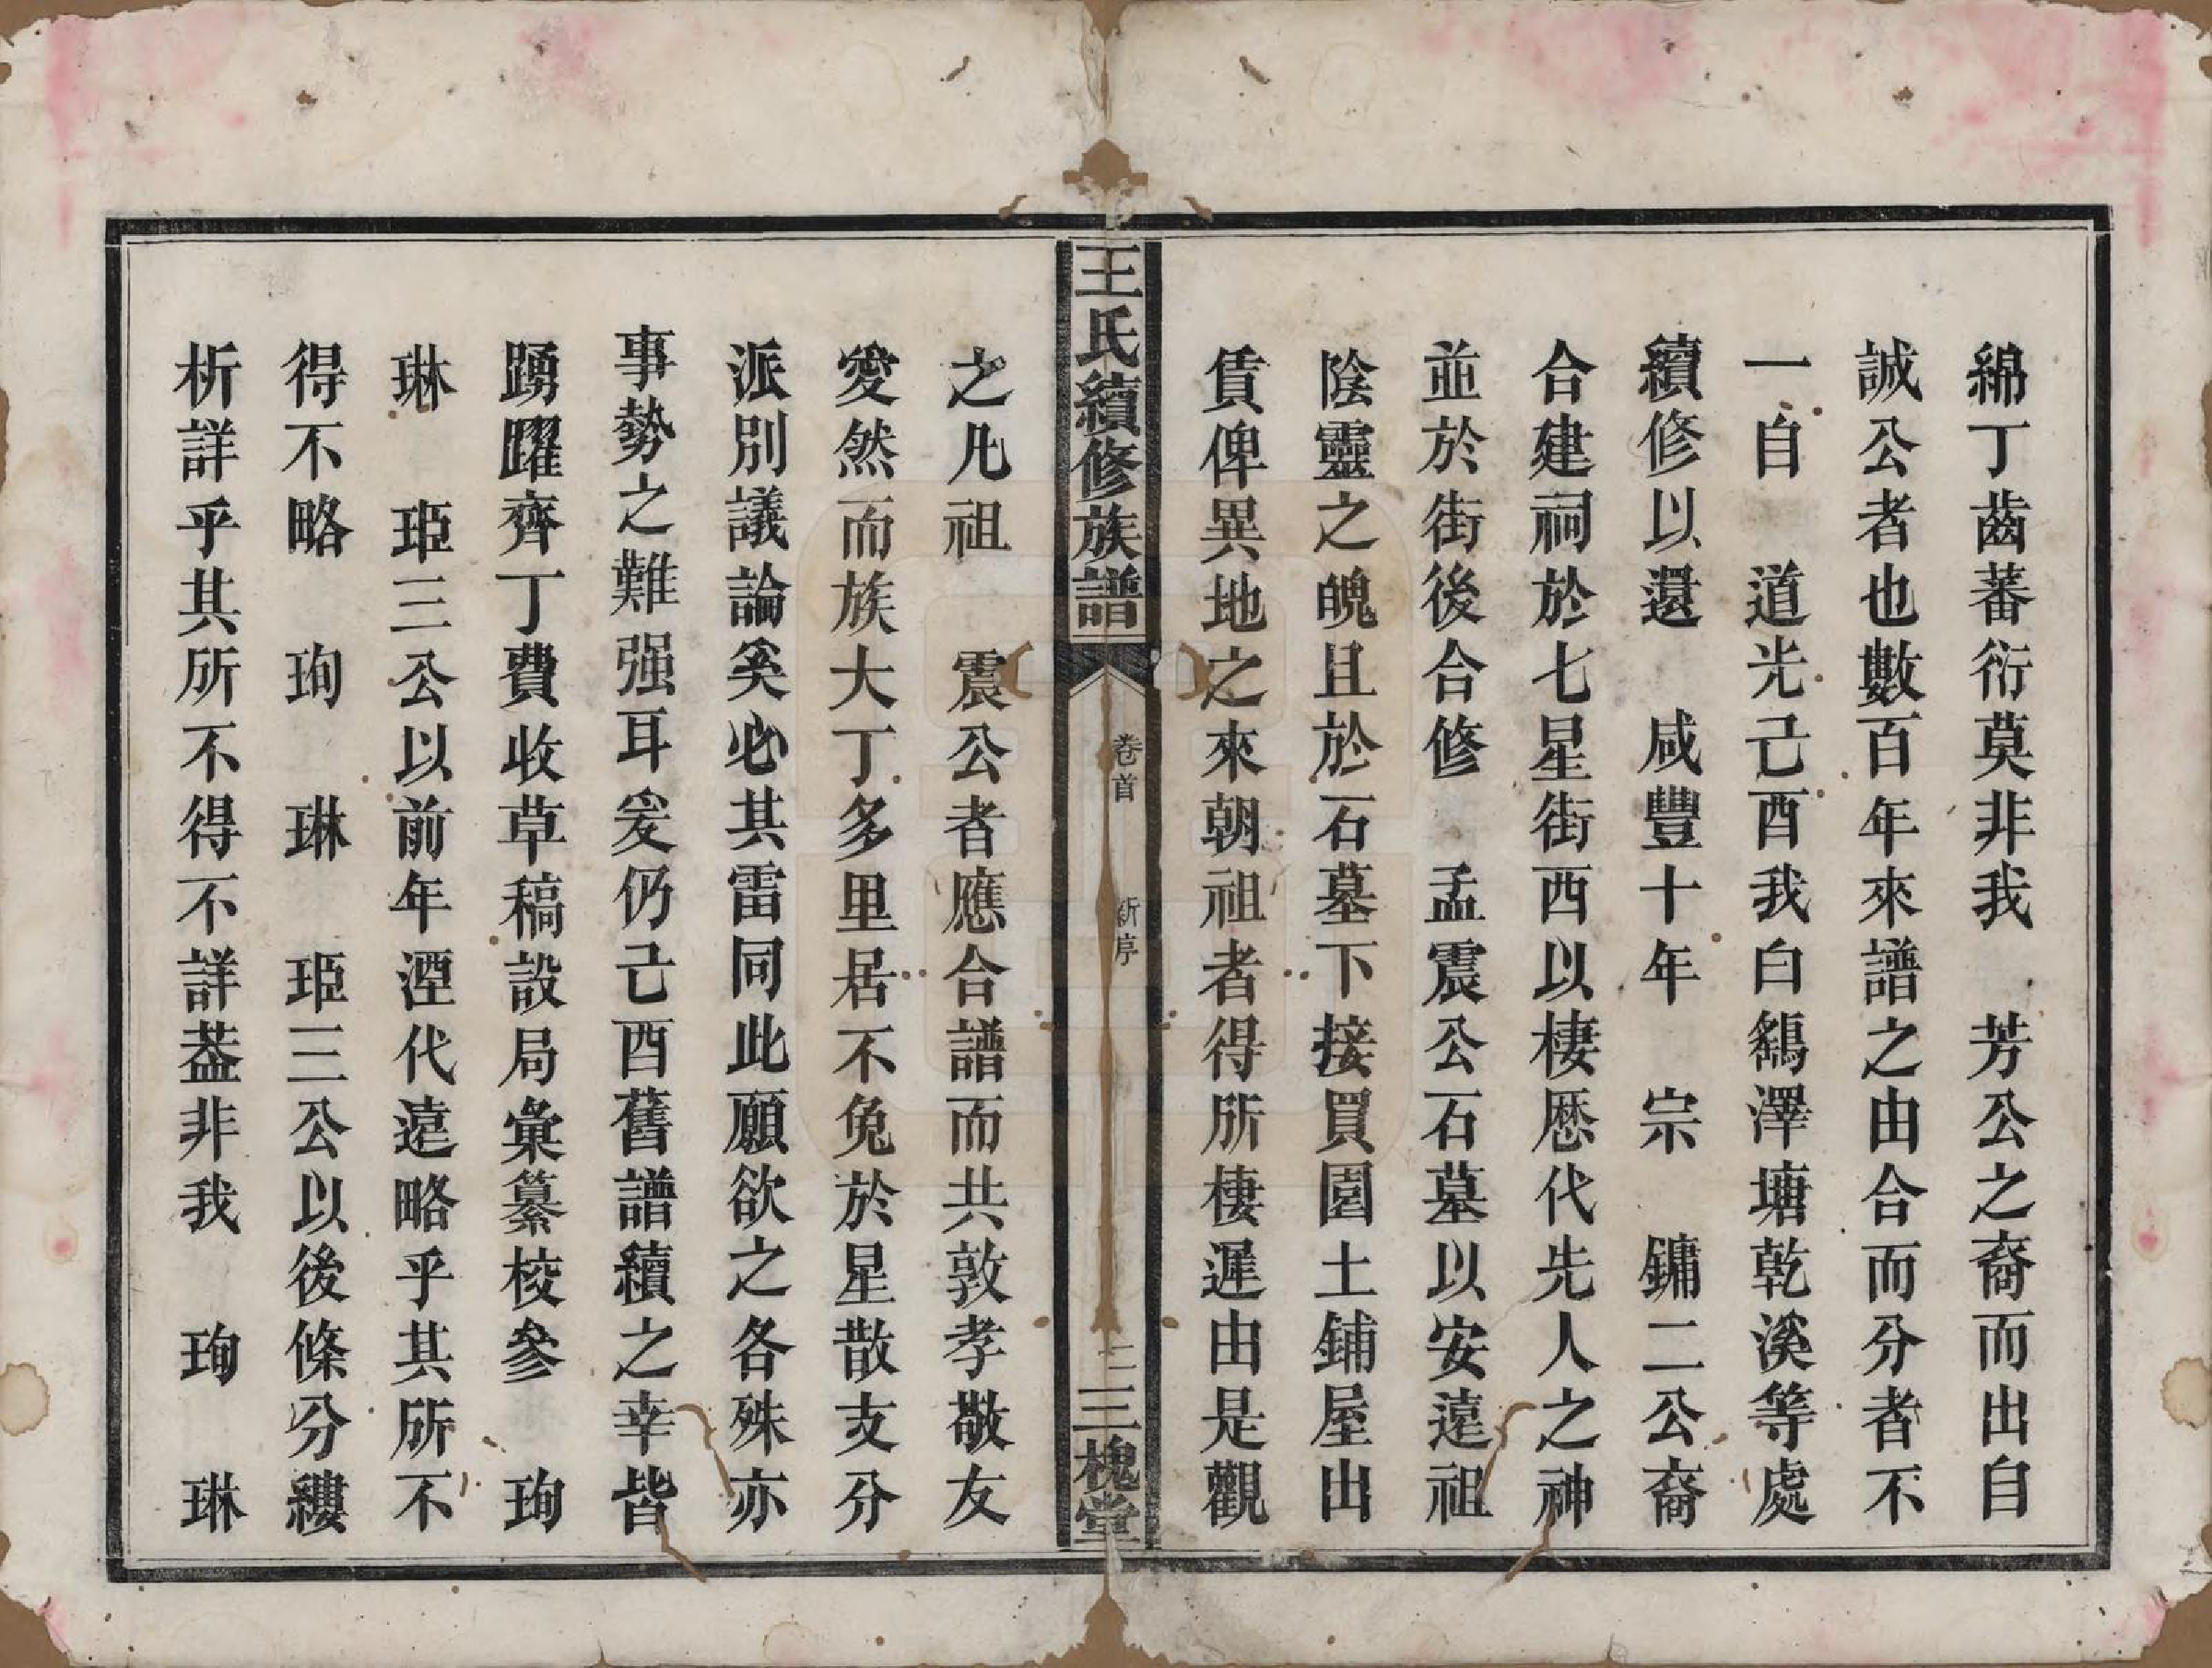 綿丁齒蕃衍莫非我　芳公之裔而出自
誠公者也數百年來譜之由合而分者不
一自　道光己酉我白鶴澤塘乾溪等處
續修以還　咸豐十年　宗　鏞二公裔
合建祠於七星街西以棲歷代先人之神
並於街後合修　孟震公石墓以安遠祖
陰靈之魄且於石墓下接買園土鋪屋出
賃俾異地之來朝祖者得所棲遲由是觀
王氏續修族譜
卷首　新序
二
三槐堂
之凡祖　震公者應合譜而共敦孝敬友
愛然而族大丁多里居不免於星散支分
派別議論奚必其雷同此願欲之各殊亦
事勢之難强耳爰仍己酉舊譜續之幸皆
踴躍齊丁費收草稿設局彙纂校參　珣
琳　琝三公以前年湮代遠略乎其所不
得不略　珣　琳　琝三公以後條分縷
析詳乎其所不得不詳葢非我　珣　琳